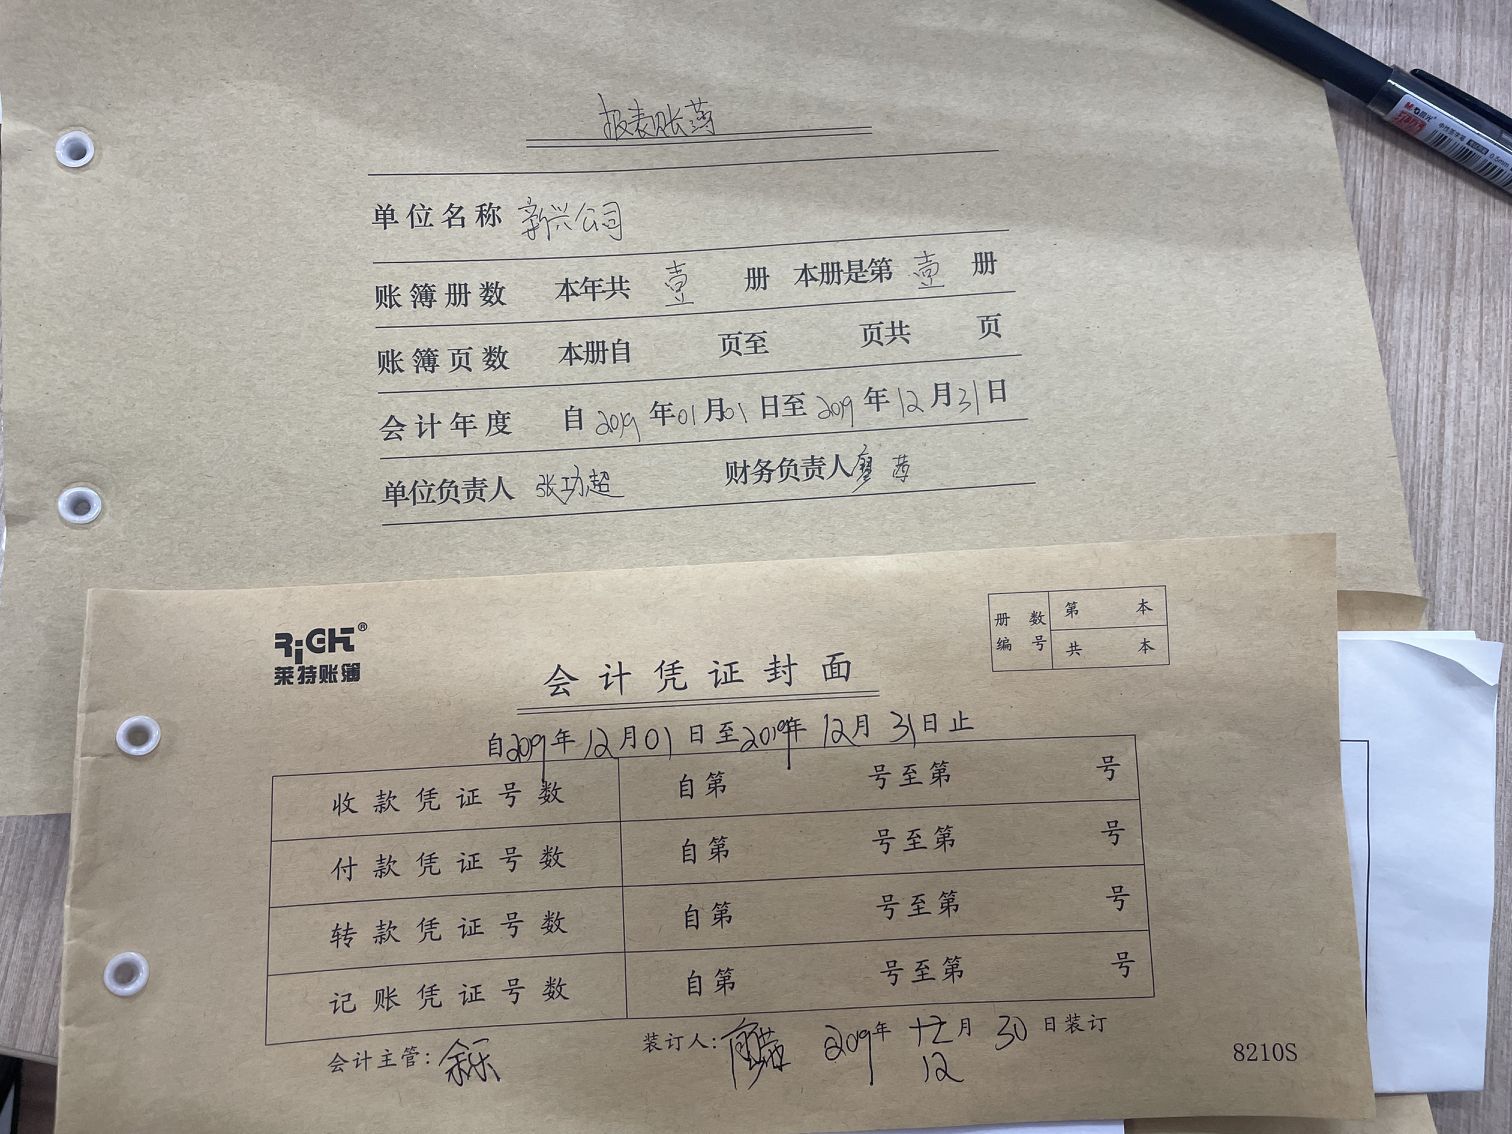 报表账簿
单位名称 新兴公司
账簿册数 本年共 壹 册 本册是第 壹 册
账簿页数 本册自 页至 页共 页
会计年度 自 2019 年 01 月 01 日至 2019 年 12 月 31 日
单位负责人 张功超 财务负责人 廖茜
RiGHT®
莱特账簿
册数编号 第 本
共 本
会计凭证封面
自 2019 年 12 月 01 日至 2019 年 12 月 31 日止
收款凭证号数 自第 号至第 号
付款凭证号数 自第 号至第 号
转款凭证号数 自第 号至第 号
记账凭证号数 自第 号至第 号
会计主管: 余乐 装订人: 廖茜 2019 年 12 月 30 日装订
8210S
M&G晨光